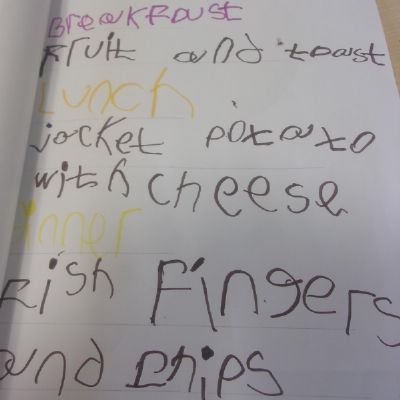 Breakfaust
Fruit and toast
Lunch
jacket potato
with cheese
Dinner
Fish Fingers
and chips